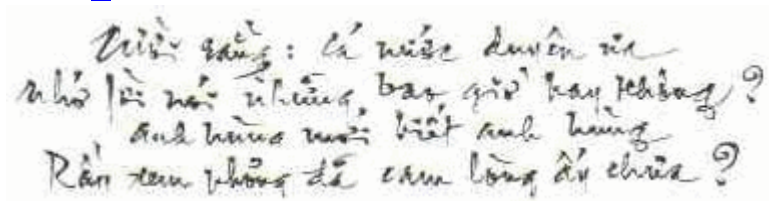 Cười rằng: Cá nước duyên ưa
nhớ lời nói những bao giờ hay không?
anh hùng mới biết anh hùng
Rầy xem phỏng đã cam lòng ấy chưa?